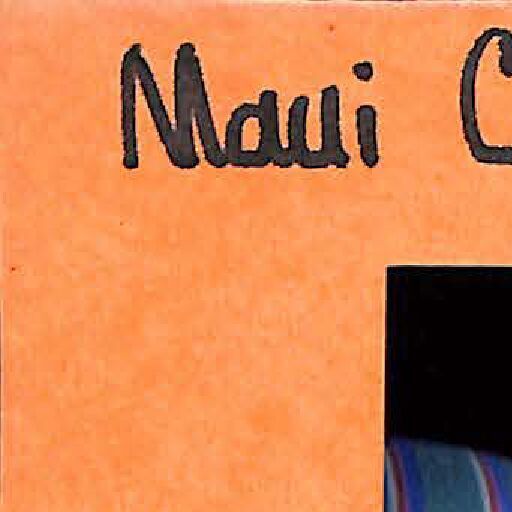 Maui C